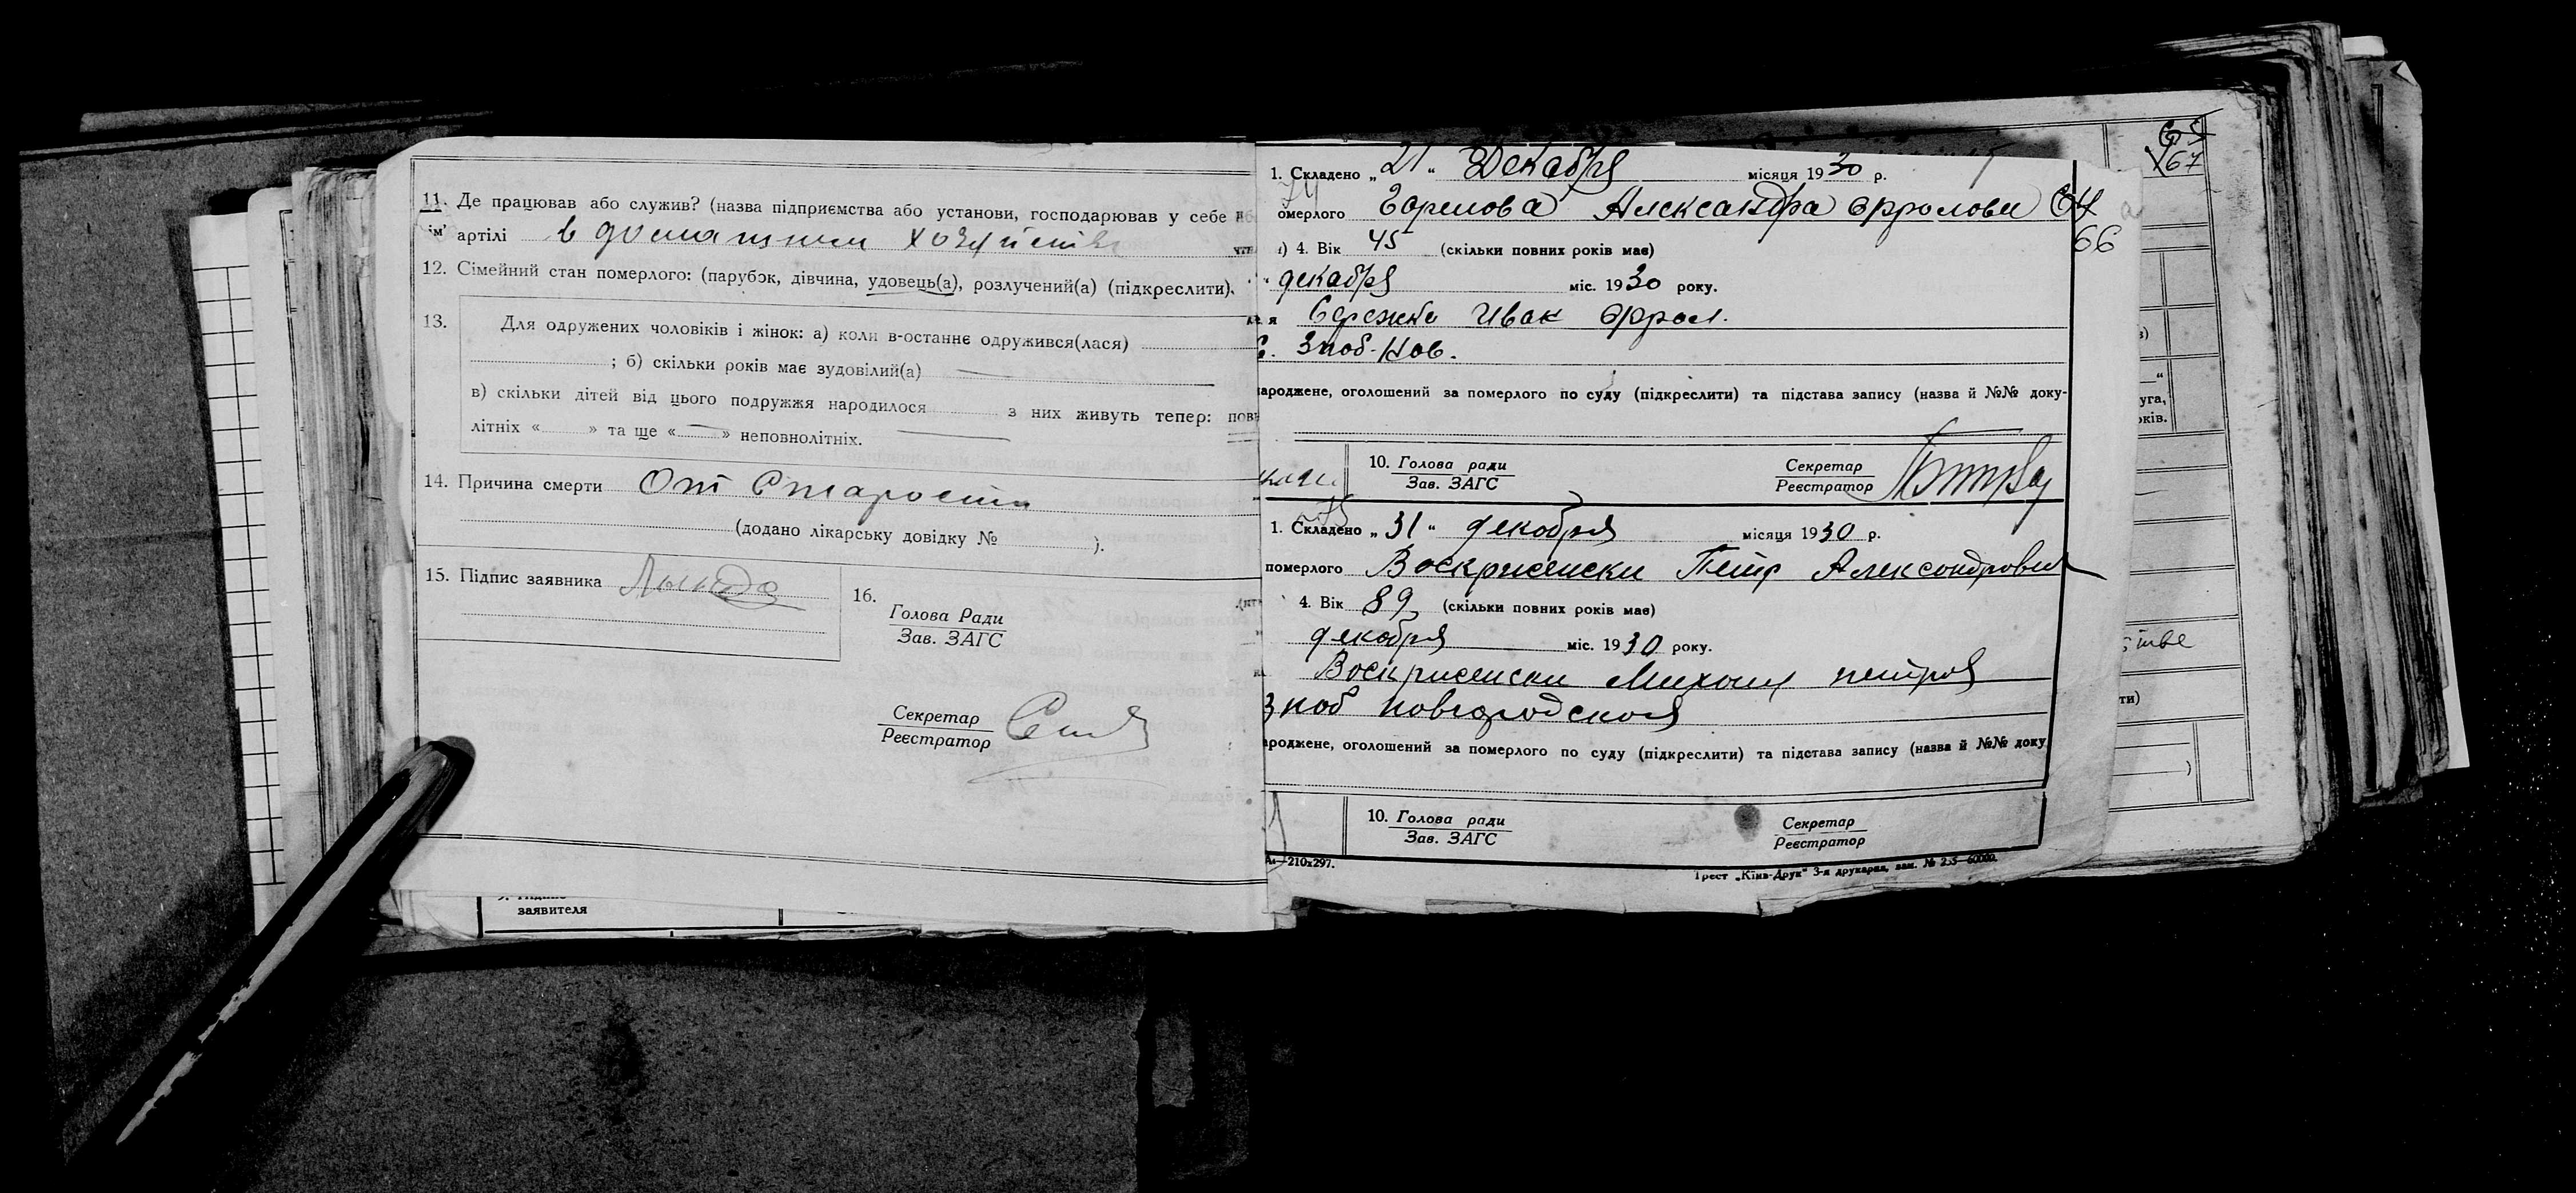 11. Де працював або служив? (назва підприємства або установи, господарював у себе
ім' артілі в домашнем хозяйстве
12. Сімейний стан померлого: (парубок, дівчина, удовець(а), розлучений(а) (підкреслити).
13. Для одружених чоловіків і жінок: а) коли в-останнє одружився(лася)
; б) скільки років має зудовілий(а)
в) скільки дітей від цього подружжя народилося з них живуть тепер: пов
літніх « » та ще « » неповнолітніх.
14. Причина смерти От Старости
(додано лікарську довідку № ).
15. Підпис заявника
16.
Голова Ради
Зав. ЗАГС
Секретар
Реєстратор
заявителя
1. Складено „21“ Декабря місяця 1930 р.
74
омерлого Александра 64
66
4. Вік 45 (скільки повних років має)
декабря міс. 1930 року.
я Иван Фрол.
С. Зноб-Нов.
ароджене, оголошений за померлого по суду (підкреслити) та підстава запису (назва й №№ доку-
10. Голова ради
Зав. ЗАГС
Секретар
Реєстратор
75
1. Складено „31“ декобря місяця 1930 р.
померлого Воскрисенски Петр Александрович
4. Вік 89 (скільки повних років має)
декобря міс. 1930 року.
Воскрисенски Михоил петров
Зноб новгородской
ароджене, оголошений за померлого по суду (підкреслити) та підстава запису (назва й №№ доку
10. Голова ради
Зав. ЗАГС
Секретар
Реєстратор
А₄—210х297.
Трест „Київ-Друк“ 3-я друкарня, зам. № 60000.
67
уга,
оків.
стве
ти)